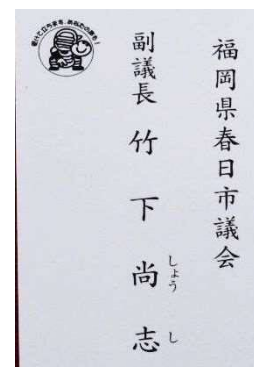 福岡県春日市議会
副議長 竹下尚志
しょう し